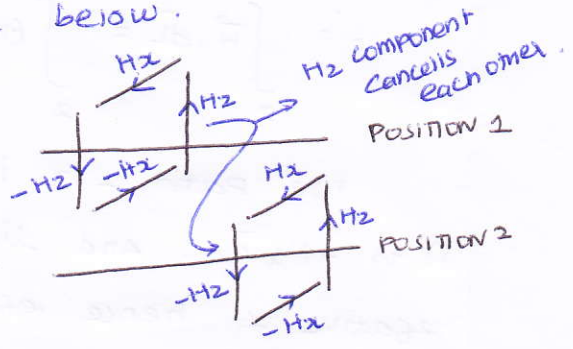 below.
Hx
Hz component
cancells
each other.
Hz
POSITION 1
-Hz
-Hx
Hx
Hz
POSITION 2
-Hz
-Hx